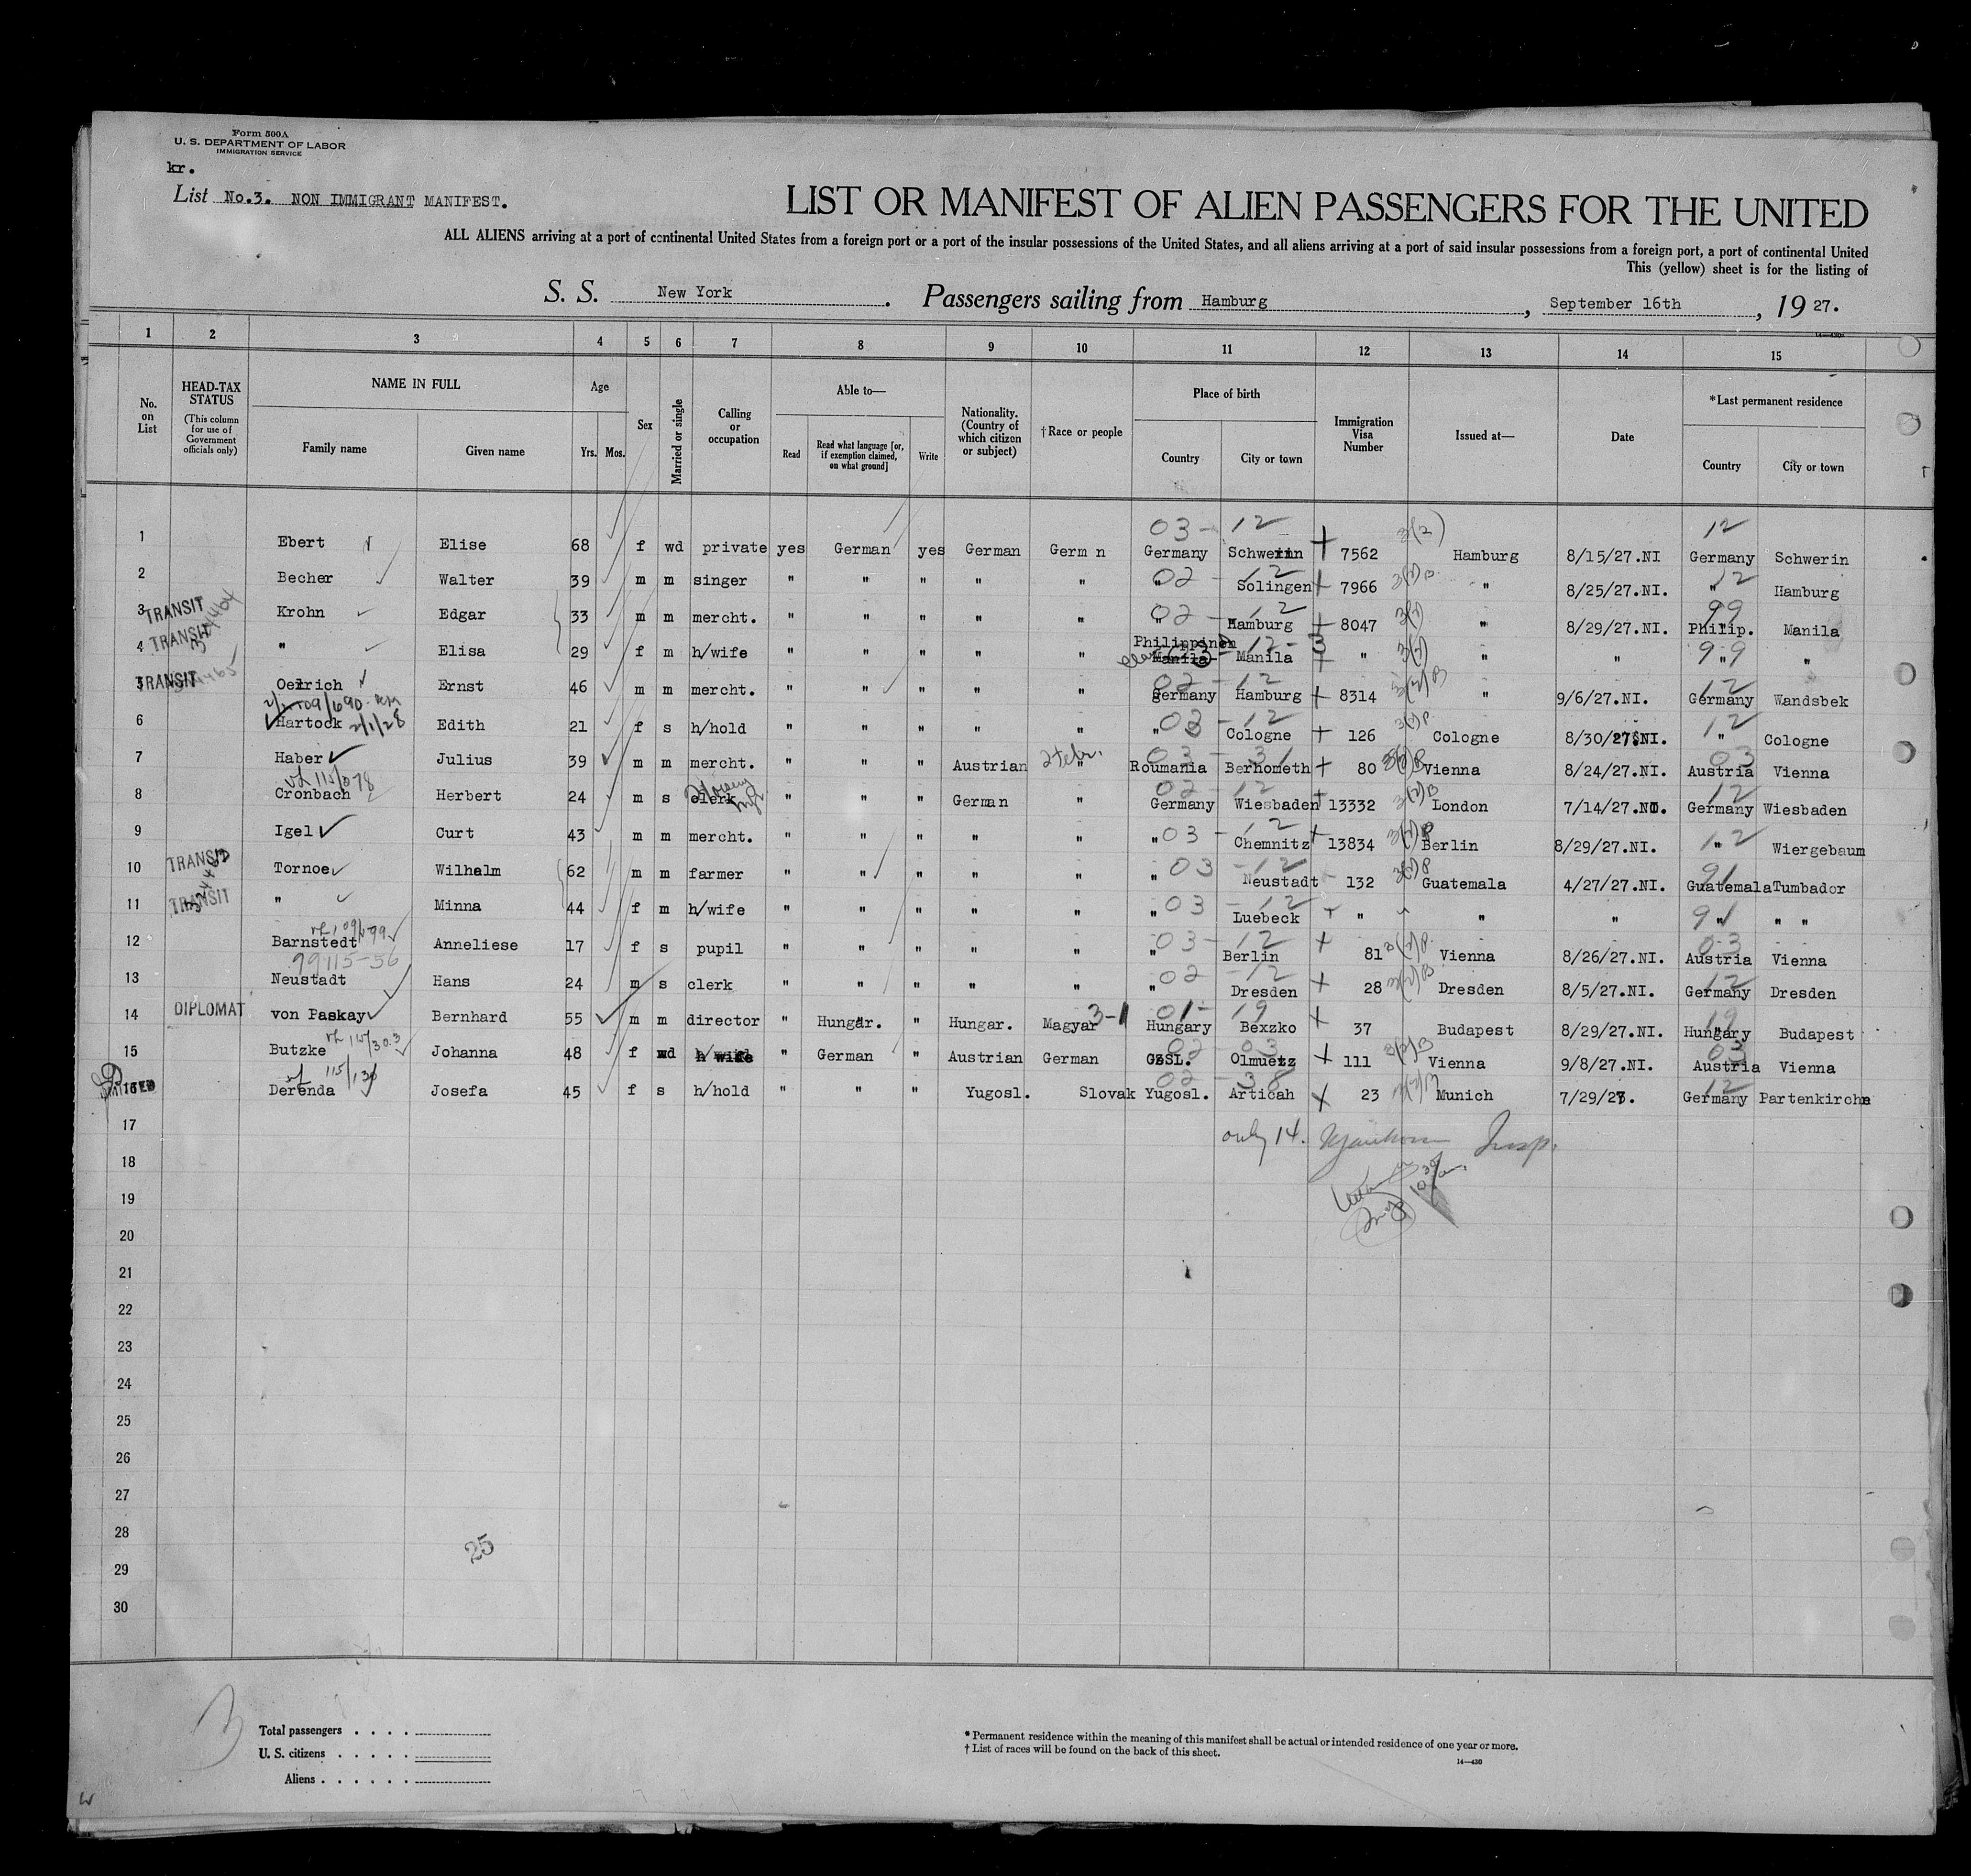 Form 500A
U. S. DEPARTMENT OF LABOR
IMMIGRATION SERVICE
kr.
List No.3. NON IMMIGRANT MANIFEST.
LIST OR MANIFEST OF ALIEN PASSENGERS FOR THE UNITED
ALL ALIENS arriving at a port of continental United States from a foreign port or a port of the insular possessions of the United States, and all aliens arriving at a port of said insular possessions from a foreign port, a port of continental United
This (yellow) sheet is for the listing of
S. S. New York. Passengers sailing from Hamburg, September 16th, 1927.
1 2 3 4 5 6 7 8 9 10 11 12 13 14 15
No. on List
HEAD-TAX STATUS (This column for use of Government officials only)
NAME IN FULL
Family name Given name
Age
Yrs. Mos.
Sex
Married or single
Calling or occupation
Able to—
Read Read what language [or, if exemption claimed, on what ground] Write
Nationality. (Country of which citizen or subject)
†Race or people
Place of birth
Country City or town
Immigration Visa Number
Issued at—
Date
*Last permanent residence
Country City or town
03 - 12 3(2) 12
1 Ebert Elise 68 f wd private yes German yes German Germ n Germany Schwerin 7562 Hamburg 8/15/27.NI Germany Schwerin
02 - 12 12
2 Becher Walter 39 m m singer " " " " " " Solingen 7966 " 8/25/27.NI. " Hamburg
02 - 12 99
3 TRANSIT Krohn Edgar 33 m m mercht. " " " " " " Hamburg 8047 " 8/29/27.NI. Philip. Manila
Philippinen 12 - 3 99
4 TRANSIT " Elisa 29 f m h/wife " " " " " Manila Manila " " " " "
02 - 12 12
5 TRANSIT Oelrich Ernst 46 m m mercht. " " " " " Germany Hamburg 8314 " 9/6/27.NI. Germany Wandsbek
2/1/28
03 - 12 12
6 Hartock Edith 21 f s h/hold " " " " " " Cologne 126 Cologne 8/30/27.NI. " Cologne
03 - 31 03
7 Haber Julius 39 m m mercht. " " " Austrian " Roumania Berhometh 80 Vienna 8/24/27.NI. Austria Vienna
02 - 12 12
8 Cronbach Herbert 24 m s clerk " " " German " Germany Wiesbaden 13332 London 7/14/27.NI. Germany Wiesbaden
03 - 12 12
9 Igel Curt 43 m m mercht. " " " " " " Chemnitz 13834 Berlin 8/29/27.NI. " Wiergebaum
03 - 12 91
10 TRANSIT Tornoe Wilhelm 62 m m farmer " " " " " " Neustadt 132 Guatemala 4/27/27.NI. Guatemala Tumbador
03 - 12 91
11 TRANSIT " Minna 44 f m h/wife " " " " " " Luebeck " " " " " "
03 - 12 03
12 Barnstedt Anneliese 17 f s pupil " " " " " " Berlin 81 Vienna 8/26/27.NI. Austria Vienna
99115-56
02 - 12 12
13 Neustadt Hans 24 m s clerk " " " " " " Dresden 28 Dresden 8/5/27.NI. Germany Dresden
3-1 01 - 19 19
14 DIPLOMAT von Paskay Bernhard 55 m m director " Hungar. " Hungar. Magyar Hungary Bexzko 37 Budapest 8/29/27.NI. Hungary Budapest
02 - 03 03
15 Butzke Johanna 48 f wd h wife " German " Austrian German CZSL. Olmuetz 111 Vienna 9/8/27.NI. Austria Vienna
115/136
02 - 38 12
16 Derenda Josefa 45 f s h/hold " " " Yugosl. Slovak Yugosl. Articah 23 Munich 7/29/27. Germany Partenkirche
17 only 14. Insp.
18
19
20
21
22
23
24
25
26
27
28
25
29
30
3
Total passengers
U. S. citizens
Aliens
* Permanent residence within the meaning of this manifest shall be actual or intended residence of one year or more.
† List of races will be found on the back of this sheet.
14—430